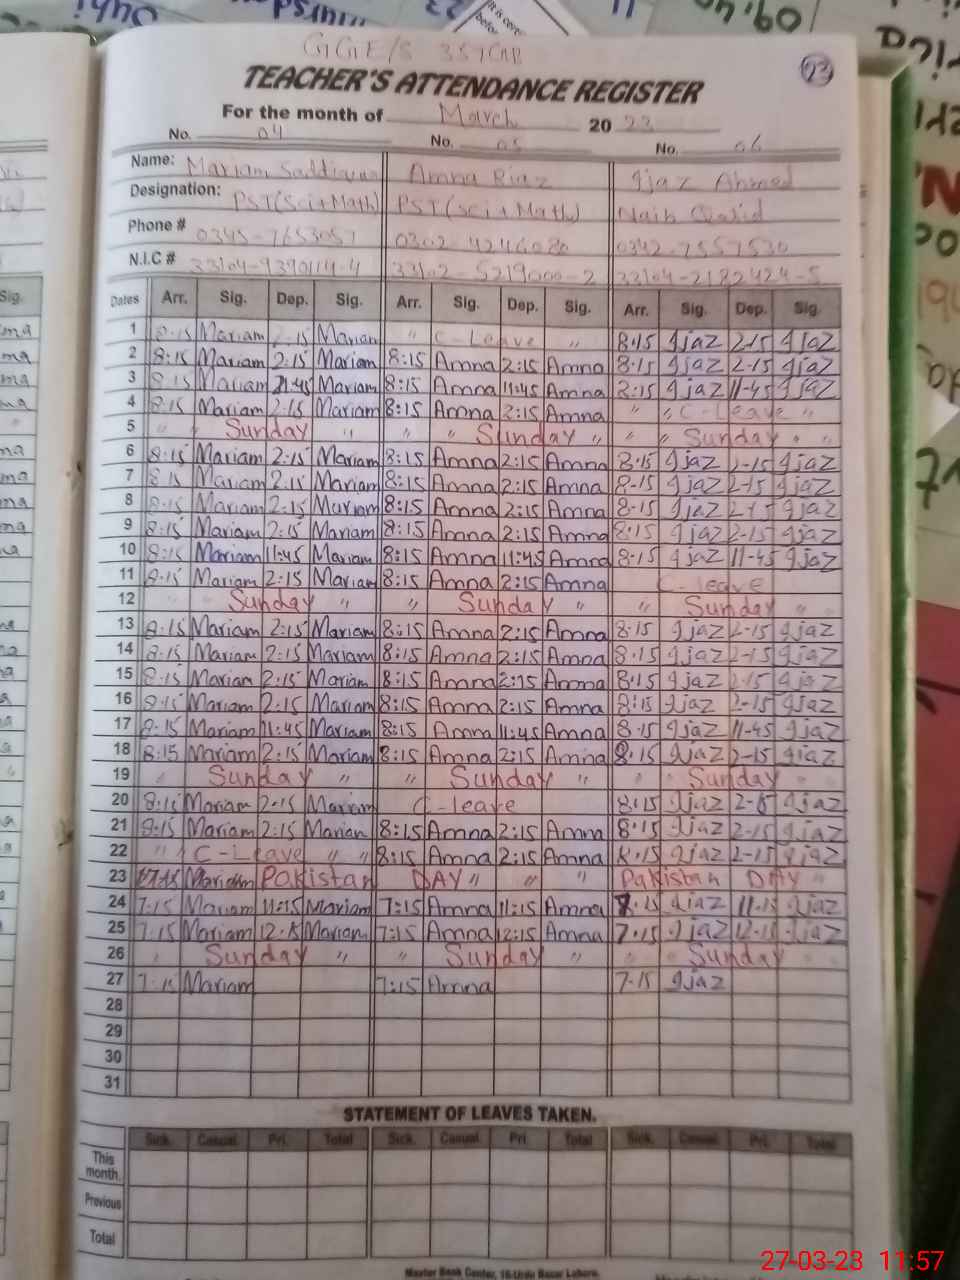 TEACHER'S ATTENDANCE REGISTER
23
For the month of March 20 23
No. 04 No. 05 No. 06
Name: Mariam Amna Riaz Ijaz Ahmed
Designation: PST(Sci+Math) PST(Sci+Math) Naib Qasid
Phone # 0345-7653057 0302-4246080 0342-7557530
N.I.C # 33104-9390114-4 33102-5219000-2 33104-2182424-5
Dates Arr. Sig. Dep. Sig. Arr. Sig. Dep. Sig. Arr. Sig. Dep. Sig.
1 8:15 Mariam 2:15 Mariam " C-Leave " 8:15 Ijaz 2-15 Ijaz
2 8:15 Mariam 2:15 Mariam 8:15 Amna 2:15 Amna 8-15 Ijaz 2-15 Ijaz
3 8:15 Mariam 11:45 Mariam 8:15 Amna 11:45 Amna 8:15 Ijaz 11-45 Ijaz
4 8:15 Mariam 2:15 Mariam 8:15 Amna 2:15 Amna " " C-Leave "
5 " " Sunday " " " Sunday " " " Sunday " "
6 8:15 Mariam 2:15 Mariam 8:15 Amna 2:15 Amna 8:15 Ijaz 2-15 Ijaz
7 8:15 Mariam 2:15 Mariam 8:15 Amna 2:15 Amna 8-15 Ijaz 2-15 Ijaz
8 8:15 Mariam 2:15 Mariam 8:15 Amna 2:15 Amna 8-15 Ijaz 2-15 Ijaz
9 8:15 Mariam 2:15 Mariam 8:15 Amna 2:15 Amna 8:15 Ijaz 2-15 Ijaz
10 8:15 Mariam 11:45 Mariam 8:15 Amna 11:45 Amna 8-15 Ijaz 11-45 Ijaz
11 8:15 Mariam 2:15 Mariam 8:15 Amna 2:15 Amna C-leave
12 " Sunday " " Sunday " " Sunday "
13 8:15 Mariam 2:15 Mariam 8:15 Amna 2:15 Amna 8-15 Ijaz 2-15 Ijaz
14 8:15 Mariam 2:15 Mariam 8:15 Amna 2:15 Amna 8-15 Ijaz 2-15 Ijaz
15 8:15 Mariam 2:15 Mariam 8:15 Amna 2:15 Amna 8:15 Ijaz 2-15 Ijaz
16 8:15 Mariam 2:15 Mariam 8:15 Amna 2:15 Amna 8:15 Ijaz 2-15 Ijaz
17 8:15 Mariam 11:45 Mariam 8:15 Amna 11:45 Amna 8-15 Ijaz 11-45 Ijaz
18 8:15 Mariam 2:15 Mariam 8:15 Amna 2:15 Amna 8:15 Ijaz 2-15 Ijaz
19 " Sunday " " Sunday " " Sunday "
20 8:15 Mariam 2:15 Mariam C-leave 8:15 Ijaz Ijaz
21 8:15 Mariam 2:15 Marian 8:15 Amna 2:15 Amna 8:15 Ijaz 2-15 Ijaz
22 " " C-Leave " " 8:15 Amna 2:15 Amna 8:15 Ijaz 2-15 Ijaz
23 Pakistan DAY " " " Pakistan DAY "
24 7:15 Mariam 11:15 Mariam 7:15 Amna 11:15 Amna Ijaz 11-15 Ijaz
25 7:15 Mariam Mariam 7:15 Amna 12:15 Amna 7:15 Ijaz Ijaz
26 " Sunday " " Sunday " " Sunday "
27 7:15 Mariam 7:15 Amna 7-15 Ijaz
28
29
30
31
STATEMENT OF LEAVES TAKEN.
Sick. Casual Pri. Total Sick. Casual Pri Total Sick. Casual Pri. Total
This month.
Previous
Total
Master Book Center, 16-Urdu Bazar Lahore.
27-03-23 11:57